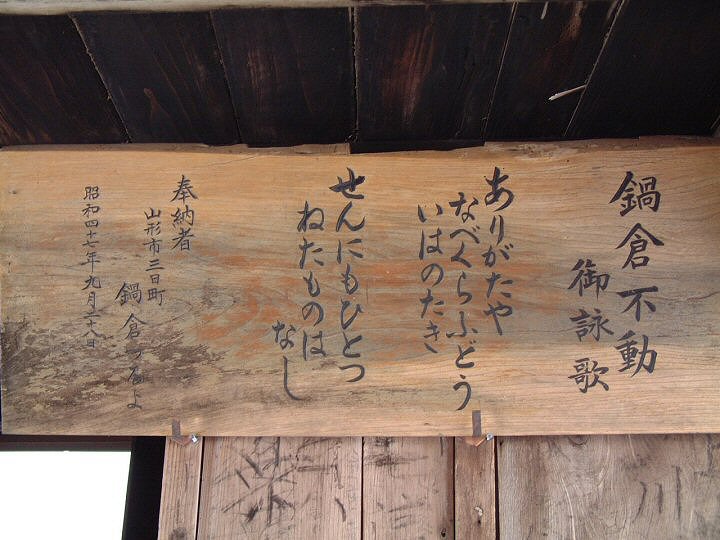 鍋倉不動
御詠歌
ありがたや
なべくらふどう
いはのたき
せんにもひとつ
ねたものは
なし
奉納者
山形市三日町
鍋倉つるよ
昭和四十七年九月二十八日
川